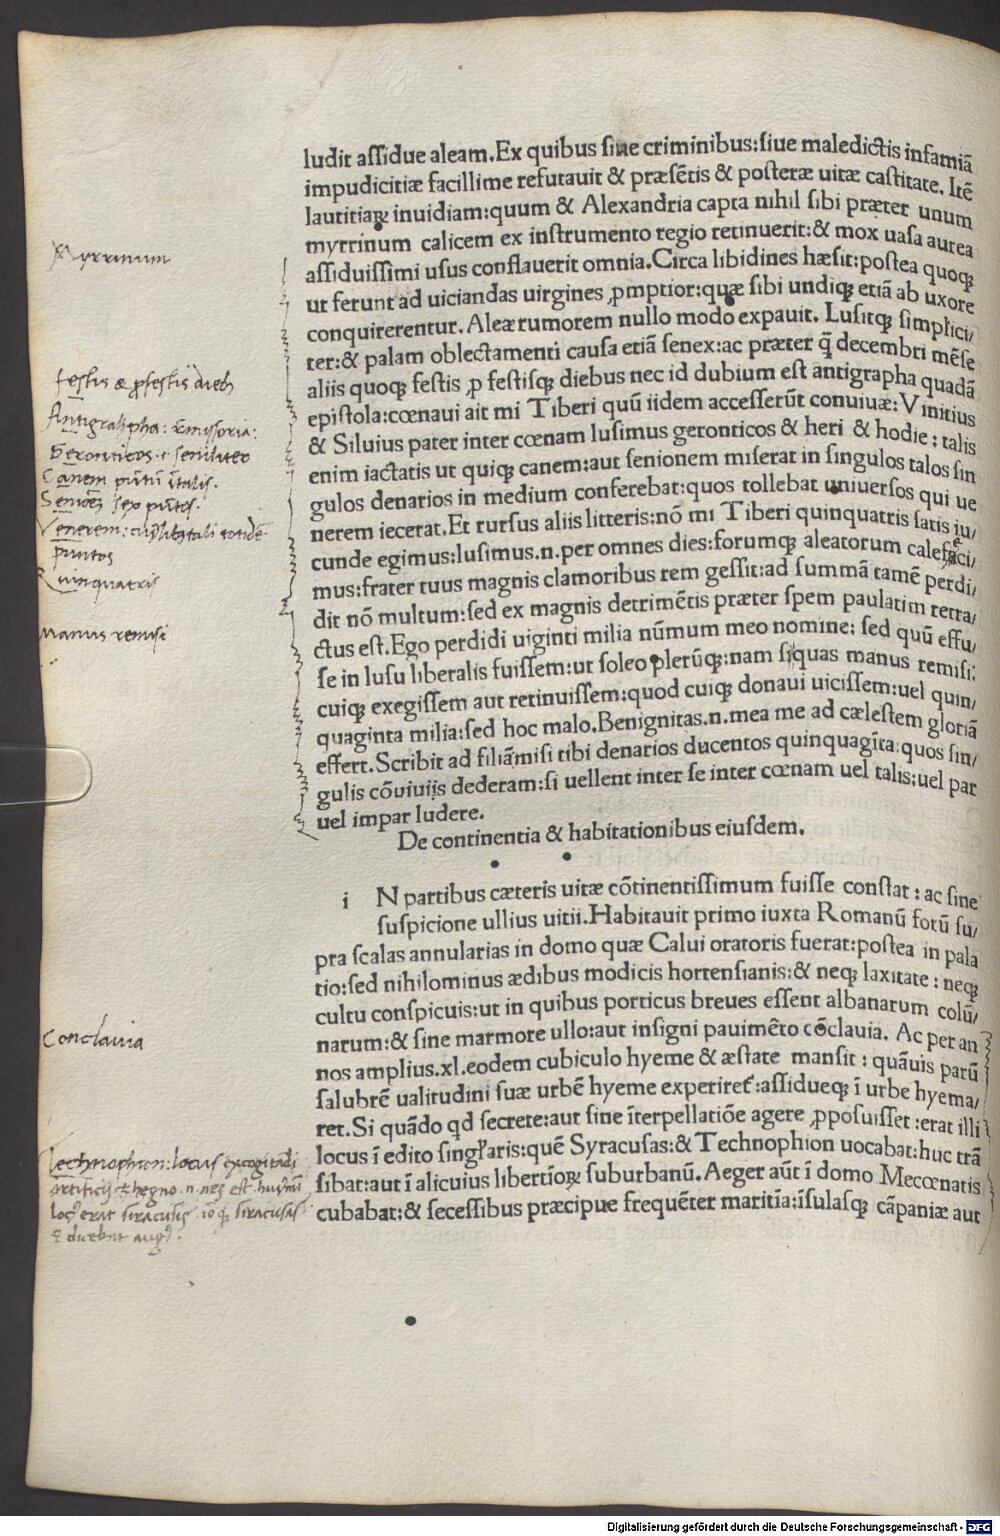 ludit assidue aleam.Ex quibus siue criminibus:siue maledictis infamiā
impudicitiæ facillime refutauit & præsētis & posteræ uitæ castitate. Itē
lautitiaꝝ inuidiam:quum & Alexandria capta nihil sibi præter unum
myrrinum calicem ex instrumento regio retinuerit:& mox uasa aurea
assiduissimi usus conflauerit omnia.Circa libidines hæsit:postea quoqꝫ
ut ferunt ad uiciandas uirgines ꝓmptior:quæ sibi undiqꝫ etiā ab uxore
conquirerentur. Aleæ rumorem nullo modo expauit. Lusitqꝫ simplici/
ter:& palam oblectamenti causa etiā senex:ac præter q̄ decembri mēse
aliis quoqꝫ festis ꝓ festisqꝫ diebus nec id dubium est antigrapha quadā
epistola:cœnaui ait mi Tiberi quū iidem accesserūt conuiuæ:Vinitius
& Siluius pater inter cœnam lusimus geronticos & heri & hodie: talis
enim iactatis ut quiqꝫ canem:aut senionem miserat in singulos talos sin
gulos denarios in medium conferebat:quos tollebat uniuersos qui ue
nerem iecerat.Et rursus aliis litteris:nō mi Tiberi quinquatris satis iu/
cunde egimus:lusimus.n.per omnes dies:forumqꝫ aleatorum calefaci/
mus:frater tuus magnis clamoribus rem gessit:ad summā tamē perdi/
dit nō multum:sed ex magnis detrimētis præter spem paulatim retra/
ctus est.Ego perdidi uiginti milia nūmum meo nomine: sed quū effu/
se in lusu liberalis fuissem:ut soleo plerūqꝫ:nam si quas manus remisi:
cuiqꝫ exegissem aut retinuissem:quod cuiqꝫ donaui uicissem:uel quin/
quaginta milia:sed hoc malo.Benignitas.n.mea me ad cælestem gloriā
effert.Scribit ad filiā:misi tibi denarios ducentos quinquagīta:quos sin/
gulis cōuiuiis dederam:si uellent inter se inter cœnam uel talis:uel par
uel impar ludere.
De continentia & habitationibus eiusdem.
i N partibus cæteris uitæ cōtinentissimum fuisse constat : ac sine
suspicione ullius uitii.Habitauit primo iuxta Romanū forū su/
pra scalas annularias in domo quæ Calui oratoris fuerat:postea in pala
tio:sed nihilominus ædibus modicis hortensianis:& neqꝫ laxitate : neqꝫ
cultu conspicuis:ut in quibus porticus breues essent albanarum colū/
narum:& sine marmore ullo:aut insigni pauimēto cōclauia. Ac per an
nos amplius.xl.eodem cubiculo hyeme & æstate mansit : quāuis parū
salubrē ualitudini suæ urbē hyeme experiret᷑:assidueqꝫ ī urbe hyema/
ret.Si quādo qd secrete:aut sine īterpellatiōe agere ꝓposuisset :erat illi
locus ī edito singl'aris:quē Syracusas:& Technophion uocabat:huc trā
sibat:aut ī alicuius libertioꝝ suburbanū.Aeger aūt ī domo Mecœnatis
cubabat:& secessibus præcipue frequēter maritīa:īsulasqꝫ cāpaniæ aut
Myrrinum
festis & ꝓfestis dieb
Antigralipha: Emissoria:
Geronticos .i. seniliter
Canem
Seniōē sex pūtos.
Venerem:
puntos
Quinquatris
Manus remisi
Conclauia
Technophion: locus excogitādi
Digitalisierung gefördert durch die Deutsche Forschungsgemeinschaft - DFG